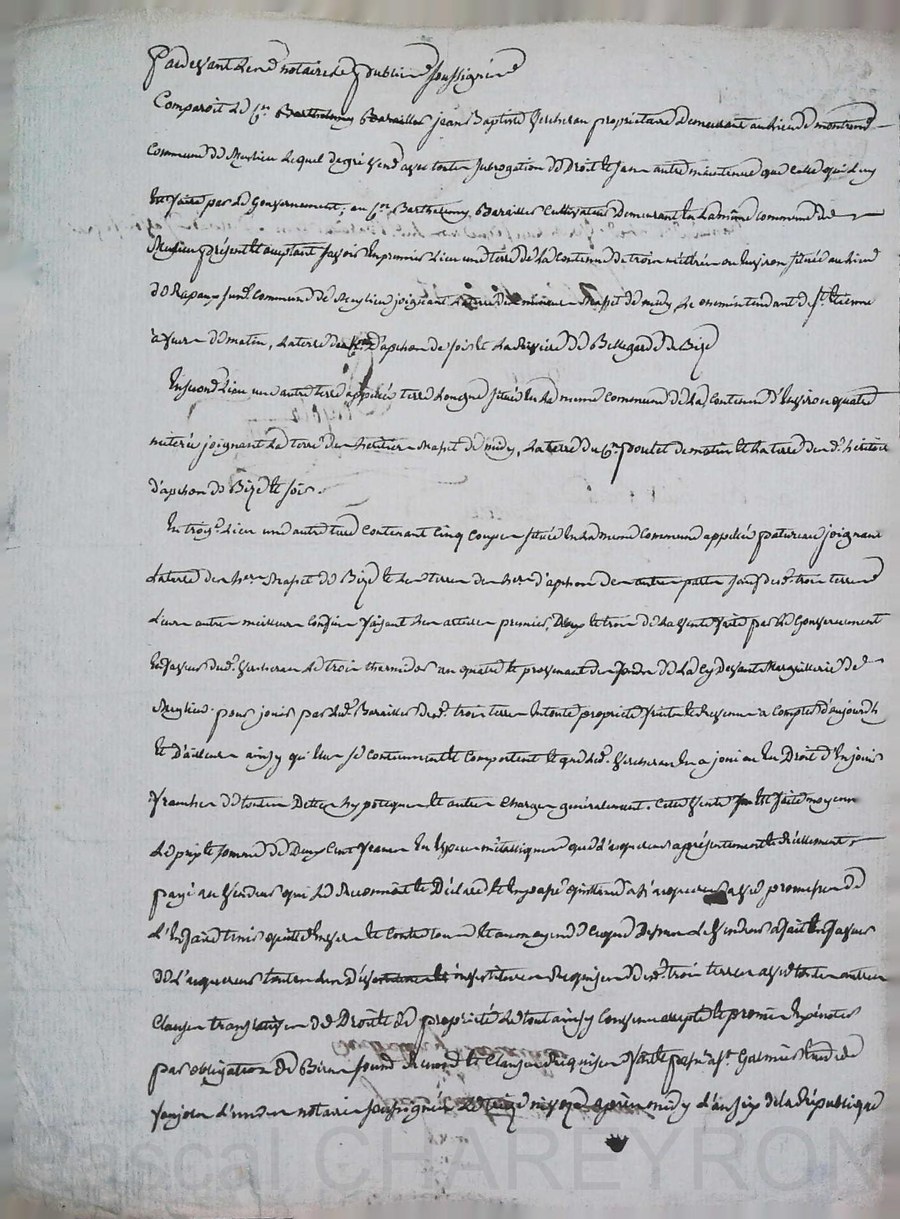 Pardevant Les notaires publics soussignés
Comparoit Le Cen Barthelemy Barailler jean Baptiste Vercherau propriétaire Demeurant au Lieu de montrond
Commune de Meylieu Lequel de gré vend avec toute subrogation de Droit et sans autre maintenue que Celle qui Luy
Est faite par Le Gouvernement, au Cen Barthelemy Barailler Cultivateur Demeurant En La même commune de
Meylieu présent et acceptant savoir En premier Lieu une terre de La Contenue de trois méttérée ou Environ située au Lieu
de Rapau susd. Commune de Meylieu joignant La terre des mineurs Massit de midy, Le chemin tendant de St. Etienne
à feurs de matin, La terre des d'apchon de soir et La Rivière de Bellegarde de Bize
En second Lieu une autre terre appellée terre Longue située En La meme Commune de La Contenue d'Environ quatre
méterée joignant La terre des héritiers Massit de midy, La terre du Cen poulet de matin et La terre des d. héritiers
d'apchon de Bize et soir.
En trois. Lieu une autre terre Contenant Cinq Coupes située En La meme Commune appellée patureau joignant
La terre des hers Massit de Bize et Les terres des hers d'apchon des autres parts sauf des d. trois terres
Leurs autres meilleurs Confins faisant Les articles premier, Deux et trois de La Vente faite par Le Gouvernement
En faveur dud. Vercherau Le trois thermidor an quatre et provenant des fonds de La Cy Devant Marguillerie de
Meylieu. pour jouir par Led. Barailler desd. trois terres En toute propriété fruits et Revenus à Compter d'aujourdh
Et D'ailleurs ainsy qu'elles se Contiennent et Comportent et que Led. Vercherau En a joui ou Eu Droit d'En jouir
franches de toutes Dettes hypoteques et autres Charges généralement. Cette Vente est faite moyenn
Le prix et somme de Deux Cent francs En Especes métalliques que L'acquereur a présentement et Réellement
payé au Vendeur qui Le Reconnoit et Déclare et En passe quittance à L'acquereur avec promesse de
L'En faire tenir quitte Envers et Contre tous et au moyen de Ce que Dessus Le Vendeur a fait En faveur
de L'acquereur toutes Les Dévestitures et investitures Requises desd. trois terres avec toutes autres
Clauses translatives de Droit et de propriété Le tout ainsy Convenu accepté et promis Executer
par obligation de Biens soumis. Renonc. et Clauses Requises fait et passé à St. Galmier Etude de
soujols L'un des notaires soussignés Le nivose après midy L'an six de la République